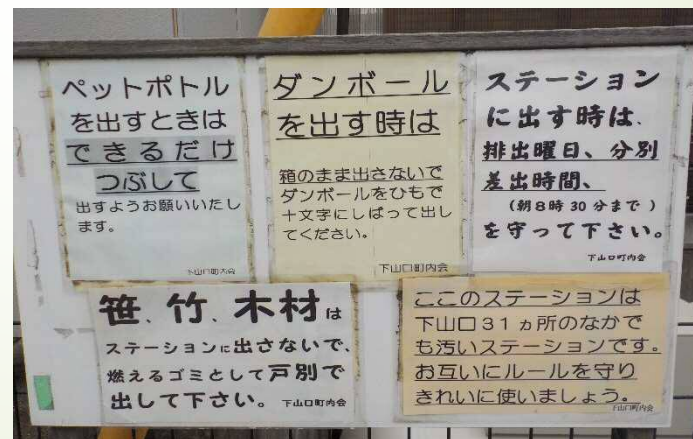 ペットポトル
を出すときは
できるだけ
つぶして
出すようお願いいたし
ます。
下山口町内会
ダンボール
を出す時は
箱のまま出さないで
ダンボールをひもで
十文字にしばって出し
てください。
下山口町内会
ステーション
に出す時は、
排出曜日、分別
差出時間、
(朝8時30分まで)
を守って下さい。
下山口町内会
笹、竹、木材は
ステーションに出さないで、
燃えるゴミとして戸別で
出して下さい。 下山口町内会
ここのステーションは
下山口31ヵ所のなかで
も汚いステーションです。
お互いにルールを守り
きれいに使いましょう。
下山口町内会